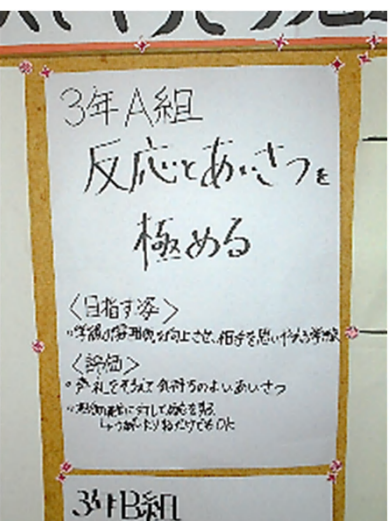 3年A組
反応とあいさつを
極める
〈目指す姿〉
・学級の雰囲気を向上させ、相手を思いやる学級
〈評価〉
・声、礼をそろえて気持ちのよいあいさつ
に対して反応を見る
OK
3年B組